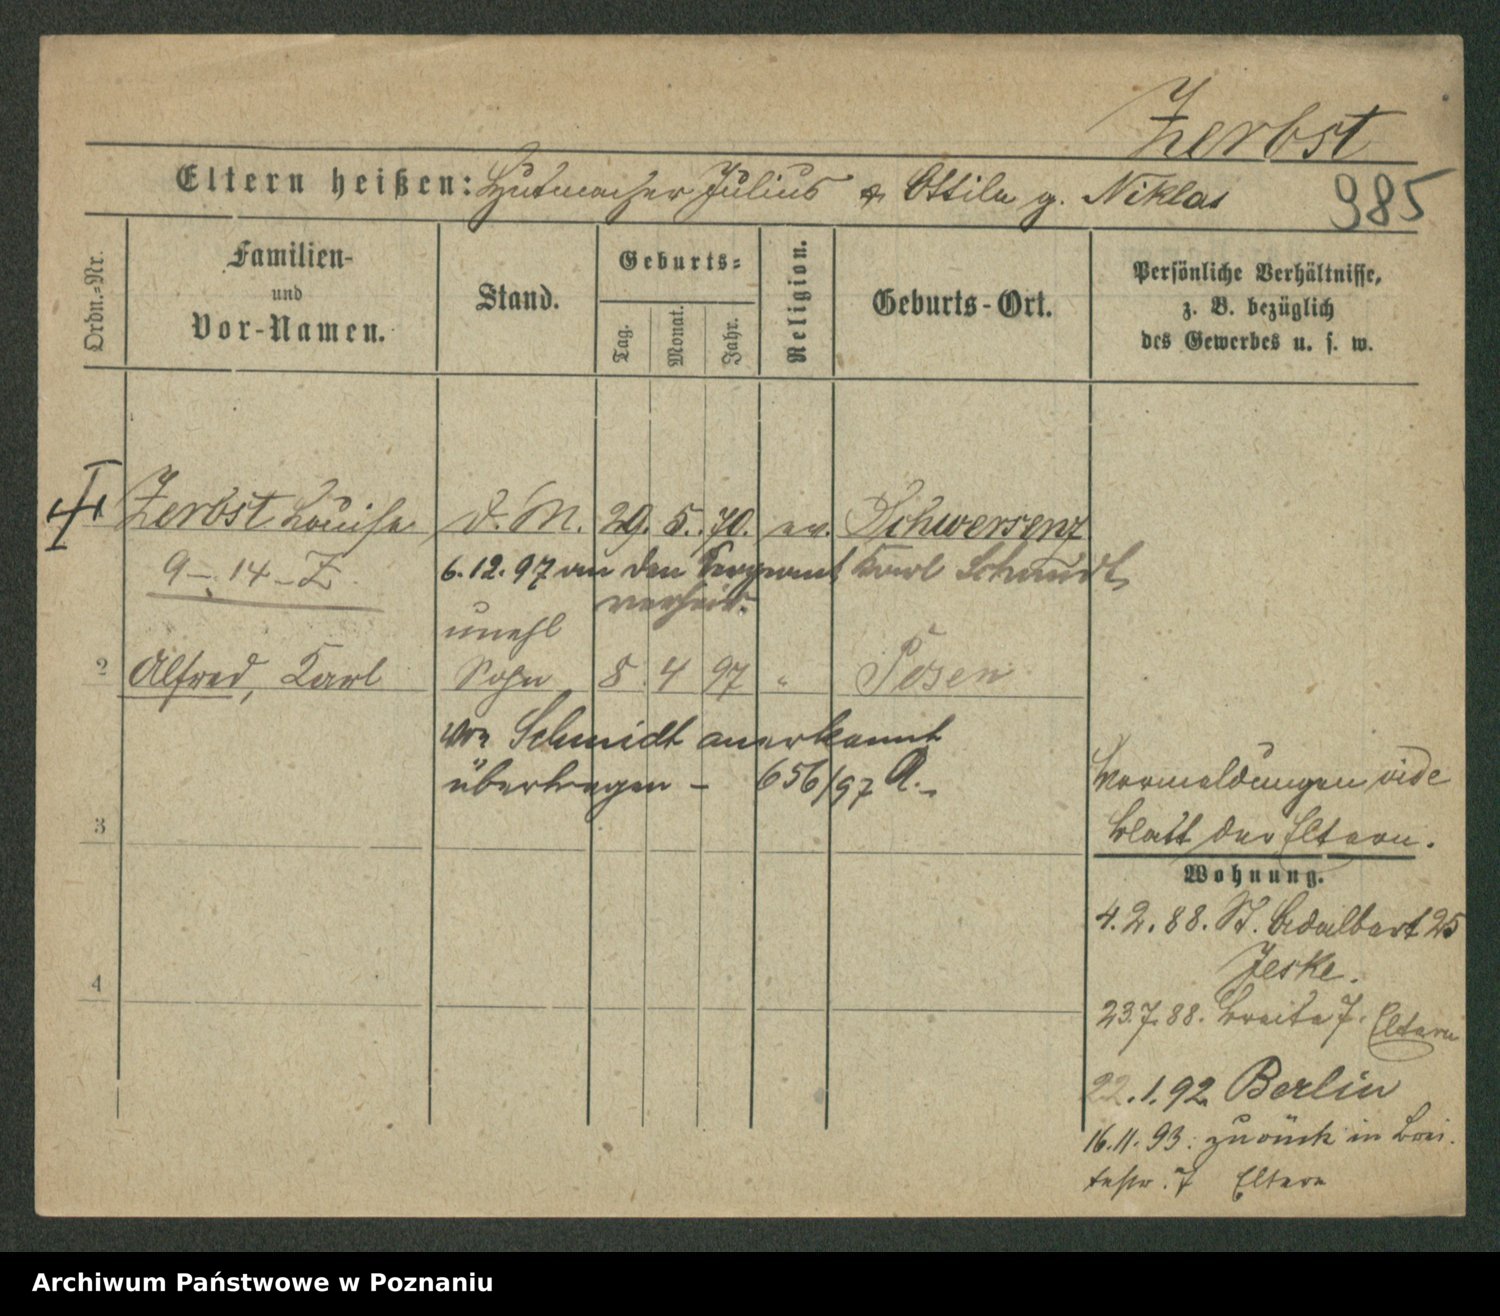 Zerbst
Eltern heißen: Hutmacher Julius & Ottilie g. Niklas
985
Ordn.-Nr.
Familien-
und
Vor-Namen.
Stand.
Geburts-
Tag.
Monat.
Jahr.
Religion.
Geburts-Ort.
Persönliche Verhältnisse,
z. B. bezüglich
des Gewerbes u. s. w.
Zerbst Louise d. M. 29. 5. 70. ev. Schwersenz
9 – 14 – Z.
6.12.97 an den Sergeant Karl Schmidt
verheir.
unehl
2 Alfred, Karl Sohn 8 4 97 " Posen
von Schmidt anerkannt
übertragen – 656/97 A. –
3
4
Vormeldungen vide
Blatt der Eltern.
Wohnung.
4.2.88. St. Adalbert 25
Jeske.
23.7.88. Breite 7. Eltern
22.1.92 Berlin
16.11.93. zurück in Brei-
testr. 7 Eltern
Archiwum Państwowe w Poznaniu